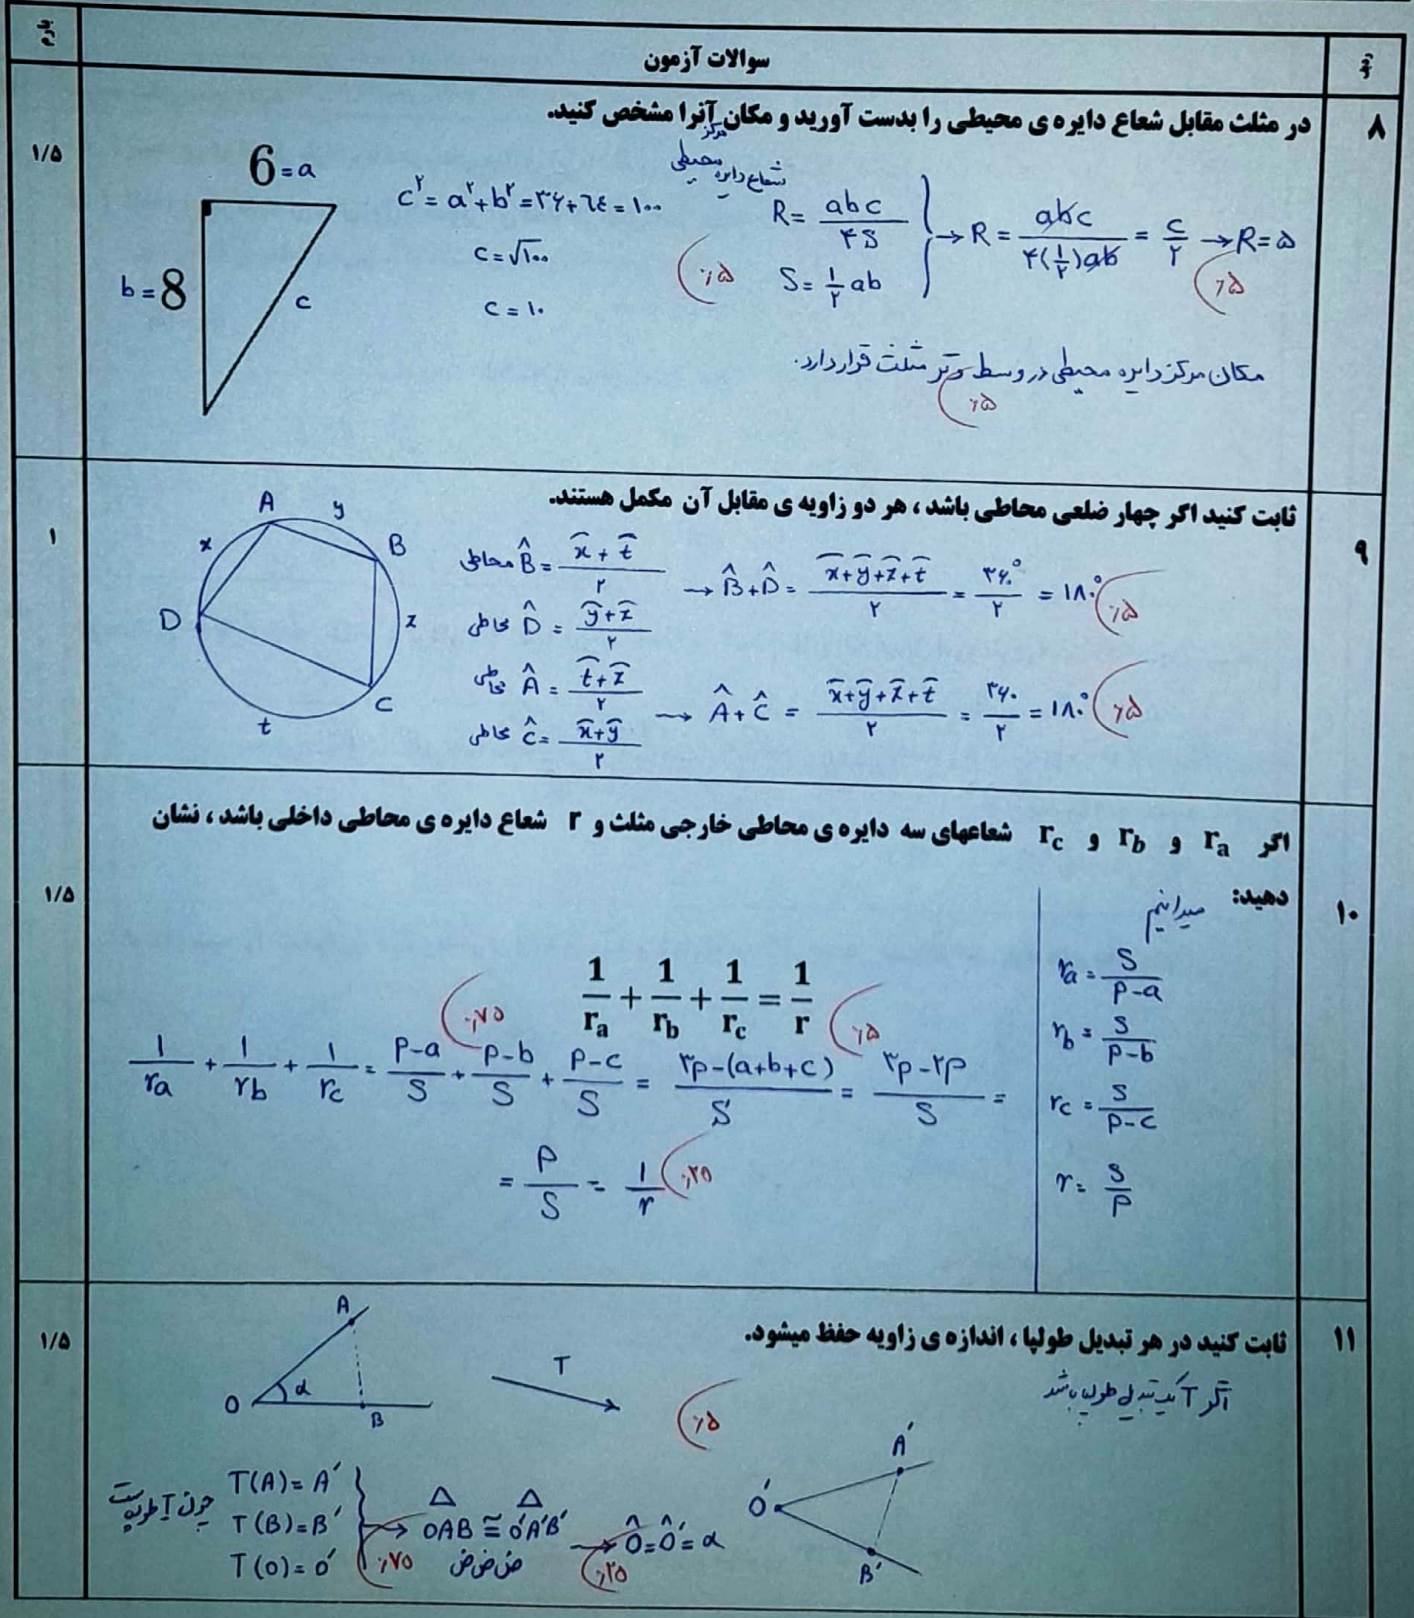 بارم
سوالات آزمون
ردیف
۸
در مثلث مقابل شعاع دایره ی محیطی را بدست آورید و مکان آنرا مشخص کنید.
مرکز
۱/۵
6=a
b=8
c
c²=a²+b²=۳۶+٦٤=۱۰۰
c=√۱۰۰
c=۱۰
شعاع دایره محیطی
R=abc/۴S
S=۱/۲ ab
→R=abc/۴(۱/۲)ab=c/۲→R=۵
٪۵
٪۵
مکان مرکز دایره محیطی در وسط وتر مثلث قرار دارد.
٪۵
۹
ثابت کنید اگر چهار ضلعی محاطی باشد ، هر دو زاویه ی مقابل آن مکمل هستند.
۱
A
y
B
x
D
z
C
t
محاطی B̂=(x+t)/۲
→B̂+D̂=(x+y+z+t)/۲=۳۶۰°/۲=۱۸۰°
٪۵
محاطی D̂=(y+z)/۲
محاطی Â=(t+z)/۲
→Â+Ĉ=(x+y+z+t)/۲=۳۶۰/۲=۱۸۰°
٪۵
محاطی Ĉ=(x+y)/۲
۱۰
اگر rₐ و r_b و r_c شعاعهای سه دایره ی محاطی خارجی مثلث و r شعاع دایره ی محاطی داخلی باشد ، نشان
دهید:
۱/۵
میدانیم
ra=S/(P-a)
rb=S/(P-b)
rc=S/(P-c)
r=S/P
1/rₐ+1/r_b+1/r_c=1/r
٪۷۵
٪۵
1/ra+1/rb+1/rc=(P-a)/S+(P-b)/S+(P-c)/S=(۳p-(a+b+c))/S=(۳p-۲p)/S=
=P/S=1/r
٪۲۵
۱۱
ثابت کنید در هر تبدیل طولپا ، اندازه ی زاویه حفظ میشود.
۱/۵
اگر T یک تبدیل طولپا باشد
A
O
α
B
T
٪۵
A'
O'
B'
چون T طولپاست
T(A)=A'
T(B)=B'
T(O)=O'
→OAB≅O'A'B'
ض ض ض
→Ô=Ô'=α
٪۷۵
٪۲۵